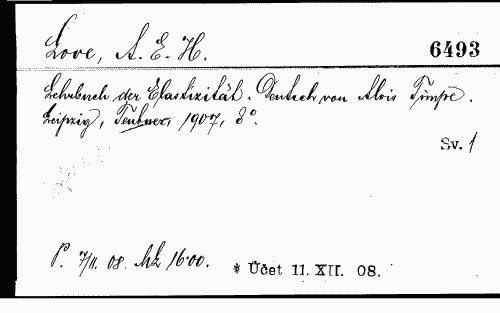 Love, A. E. H.
6493
Lehrbuch der Elastizität. Deutsch von Alois Timpe.
Leipzig, Teubner, 1907, 8°.
Sv. 1
P. 7/II. 08. Mk 16·00.
* Účet 11. XII. 08.